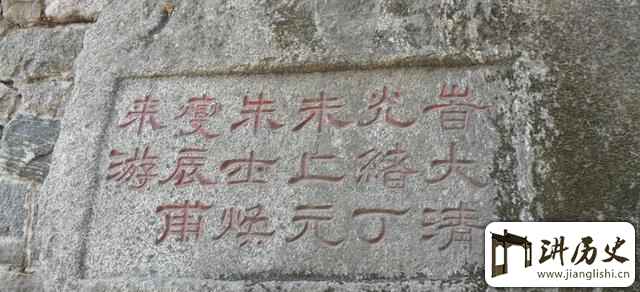 峕大清
光緒丁
未上元
朱士焕
辰甫
来游
讲历史
www.jianglishi.cn